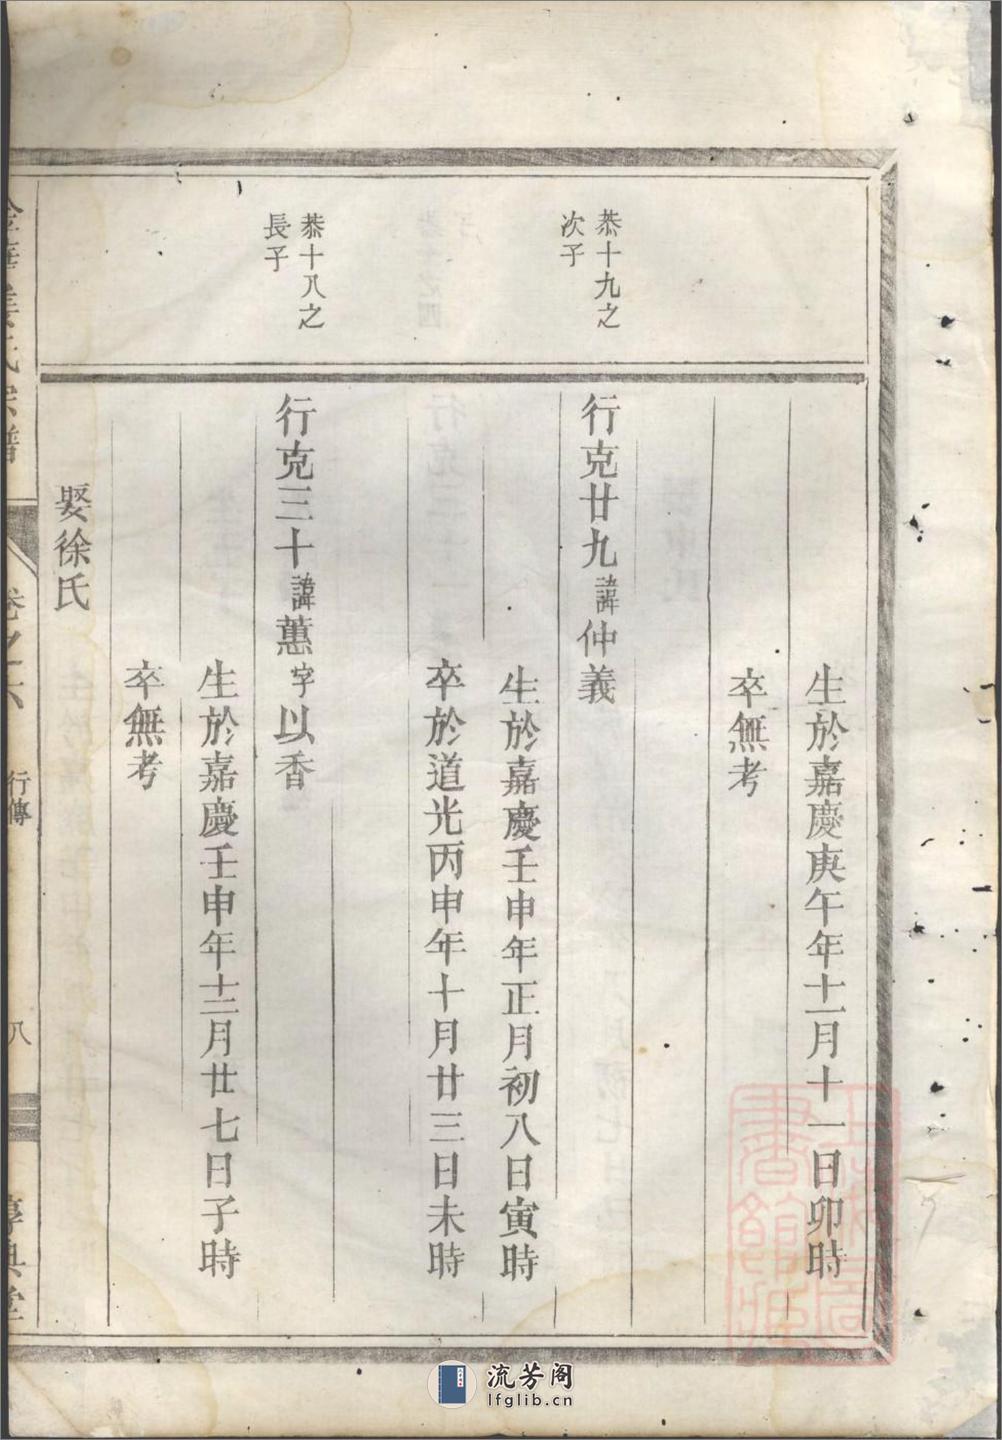 生於嘉慶庚午年十一月十一日卯時
卒無考
恭十九之
次子
行克廿九諱仲義
生於嘉慶壬申年正月初八日寅時
卒於道光丙申年十月廿三日未時
恭十八之
長子
行克三十諱蕙字以香
生於嘉慶壬申年十二月廿七日子時
卒無考
娶徐氏
氏宗譜
卷之六
行傳
八
流芳阁
lfglib.cn